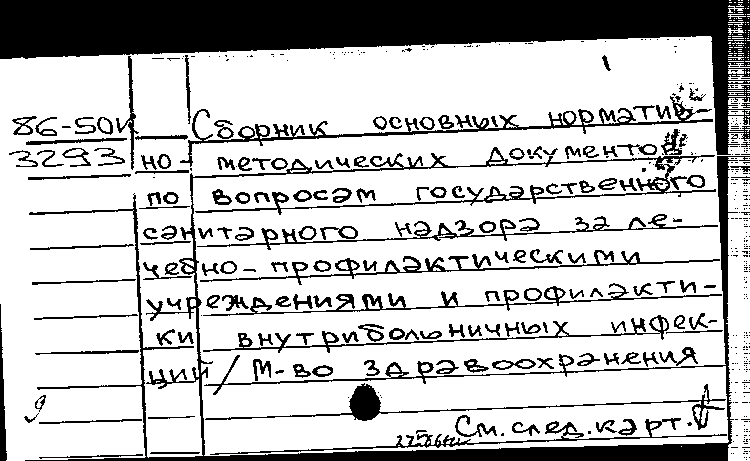 1
86-50К Сборник основных норматив-
3293 но-методических документов
по вопросам государственного
санитарного надзора за ле-
чебно-профилактическими
учреждениями и профилакти-
ки внутрибольничных инфек-
ций / М-во здравоохранения
См. след. карт.